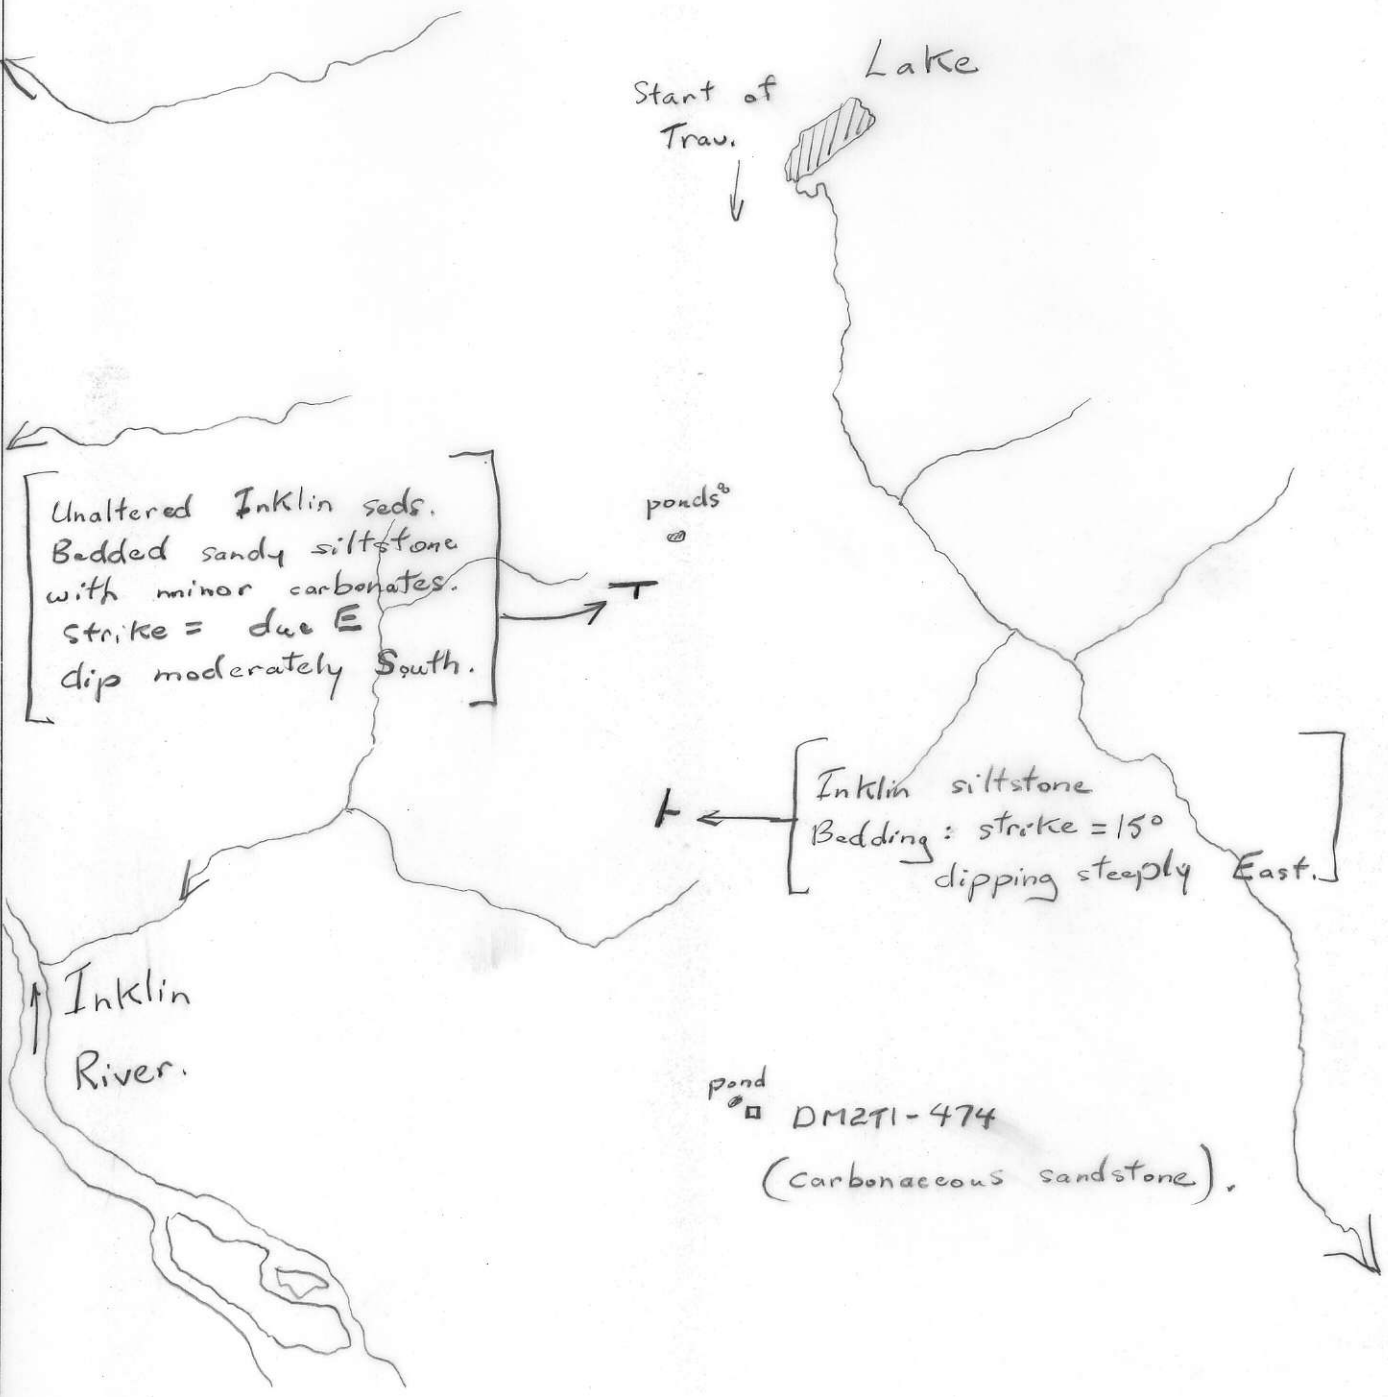 Lake
Start of
Trav.
Unaltered Inklin seds.
Bedded sandy siltstone
with minor carbonates.
strike = due E
dip moderately South.
ponds
Inklin siltstone
Bedding: strike = 15°
dipping steeply East.
Inklin
River.
pond
DM2TI-474
(carbonaceous sandstone).